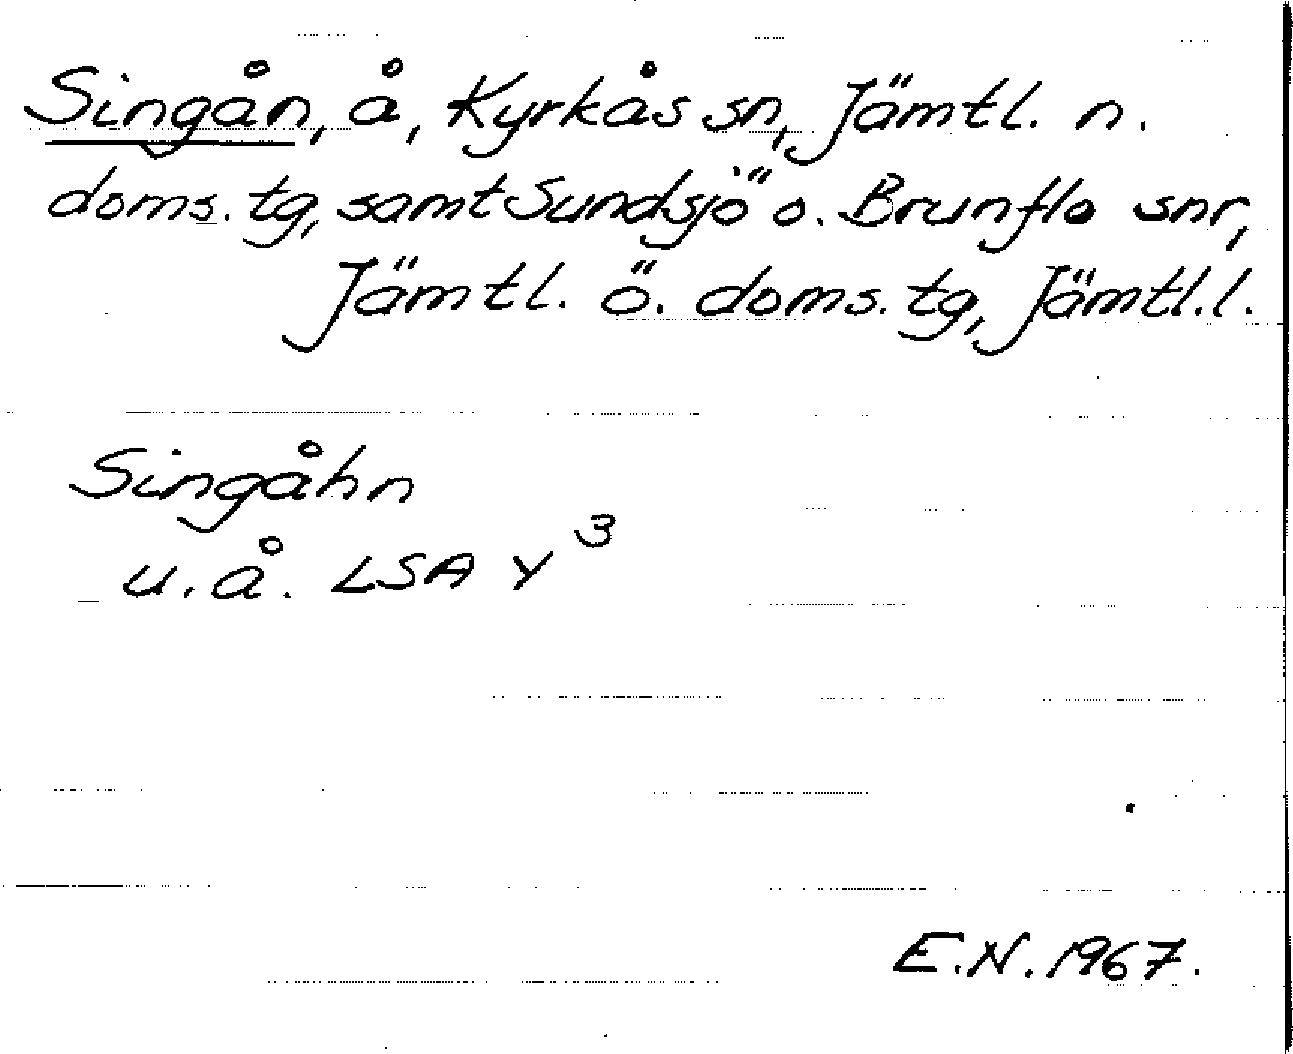 Singån, å, Kyrkås sn, Jämtl. n.
doms. tg, samt Sundsjö o. Brunflo snr,
Jämtl. ö. doms. tg, Jämtl. l.
Singåhn
u. å. LSA Y 3
E.N. 1967.